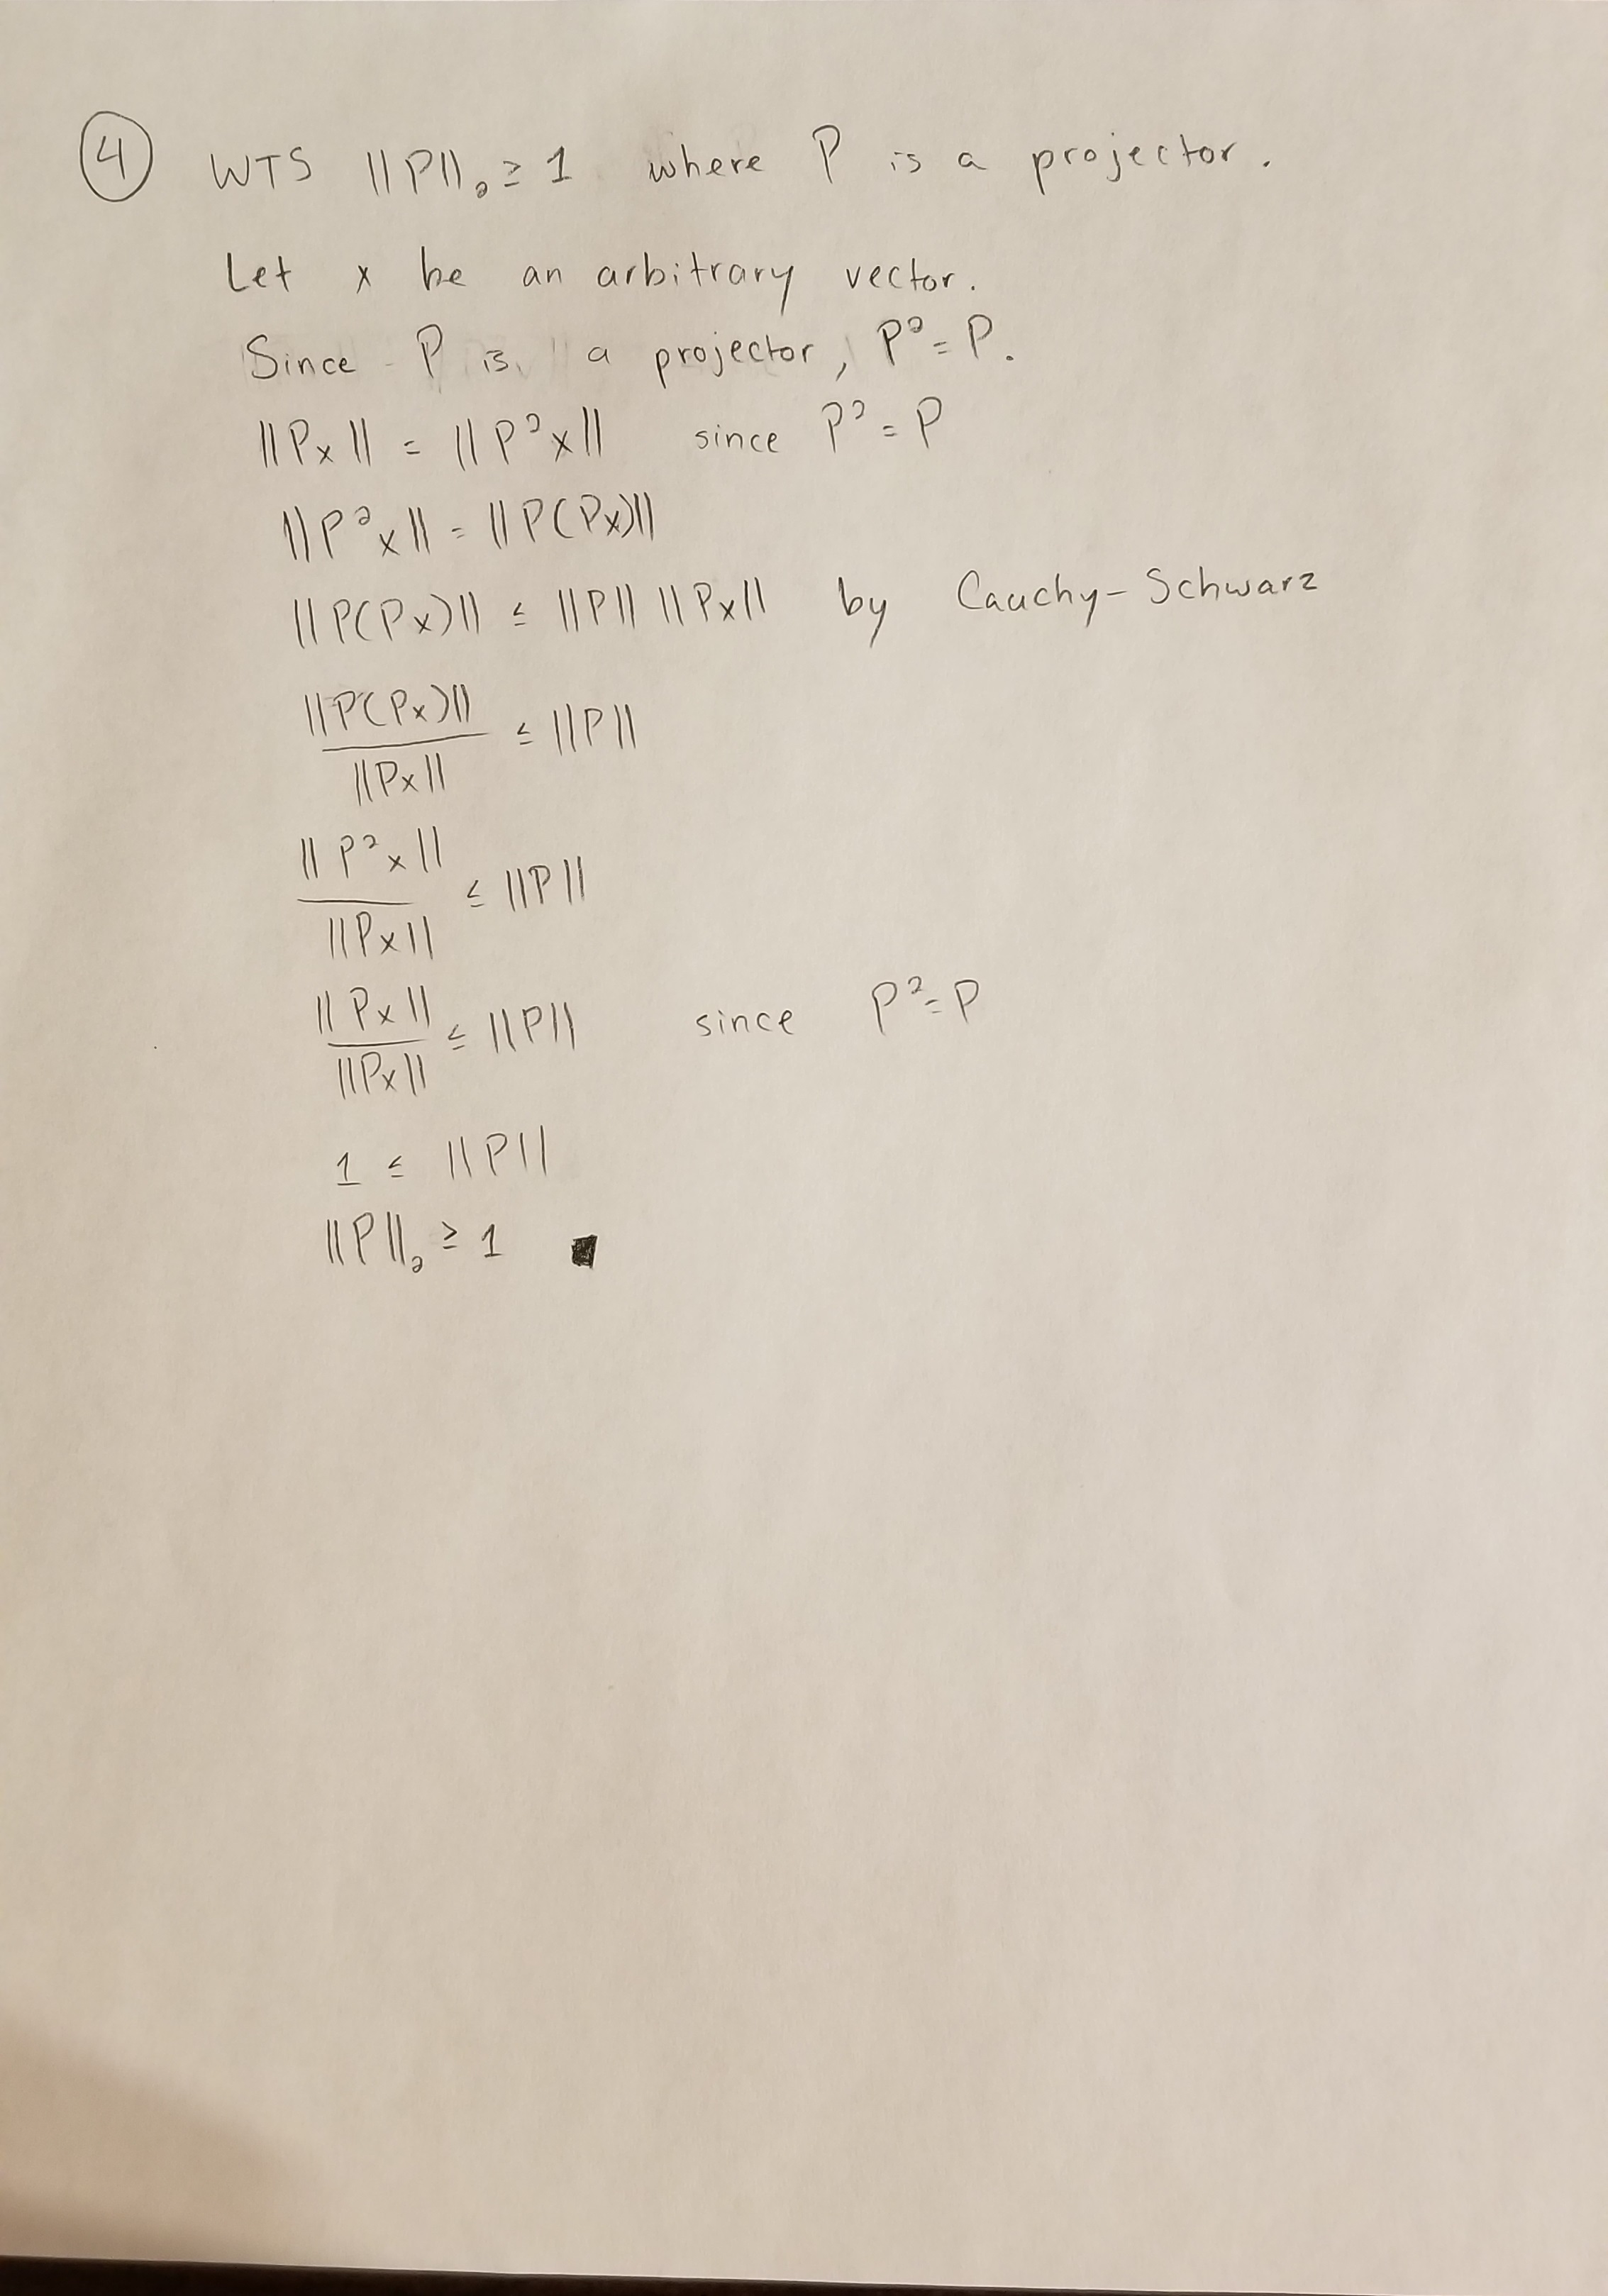 ④ WTS ||P||₂ ≥ 1 where P is a projector.
Let x be an arbitrary vector.
Since P is a projector, P² = P.
||Px|| = ||P²x|| since P² = P
||P²x|| = ||P(Px)||
||P(Px)|| ≤ ||P|| ||Px|| by Cauchy-Schwarz
||P(Px)|| / ||Px|| ≤ ||P||
||P²x|| / ||Px|| ≤ ||P||
||Px|| / ||Px|| ≤ ||P|| since P² = P
1 ≤ ||P||
||P||₂ ≥ 1 ■